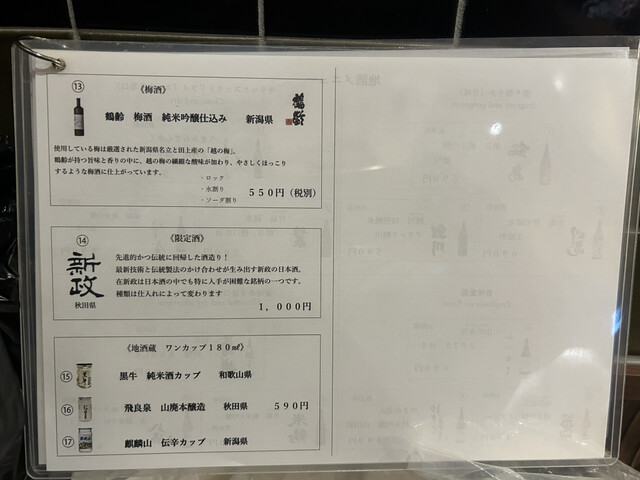 ⑬
《梅酒》
鶴齢　梅酒　純米吟醸仕込み　新潟県
鶴齢
使用している梅は厳選された新潟県名立と田上産の「越の梅」。
鶴齢が持つ旨味と香りの中に、越の梅の繊細な酸味が加わり、やさしくほっこり
するような梅酒に仕上がっています。
・ロック
・水割り
・ソーダ割り
５５０円（税別）
⑭
《限定酒》
新政
秋田県
先進的かつ伝統に回帰した酒造り！
最新技術と伝統製法のかけ合わせが生み出す新政の日本酒。
在新政は日本酒の中でも特に入手が困難な銘柄の一つです。
種類は仕入れによって変わります
１，０００円
《地酒蔵　ワンカップ１８０㎖》
⑮　黒牛　純米酒カップ　和歌山県
⑯　飛良泉　山廃本醸造　秋田県　５９０円
⑰　麒麟山　伝辛カップ　新潟県